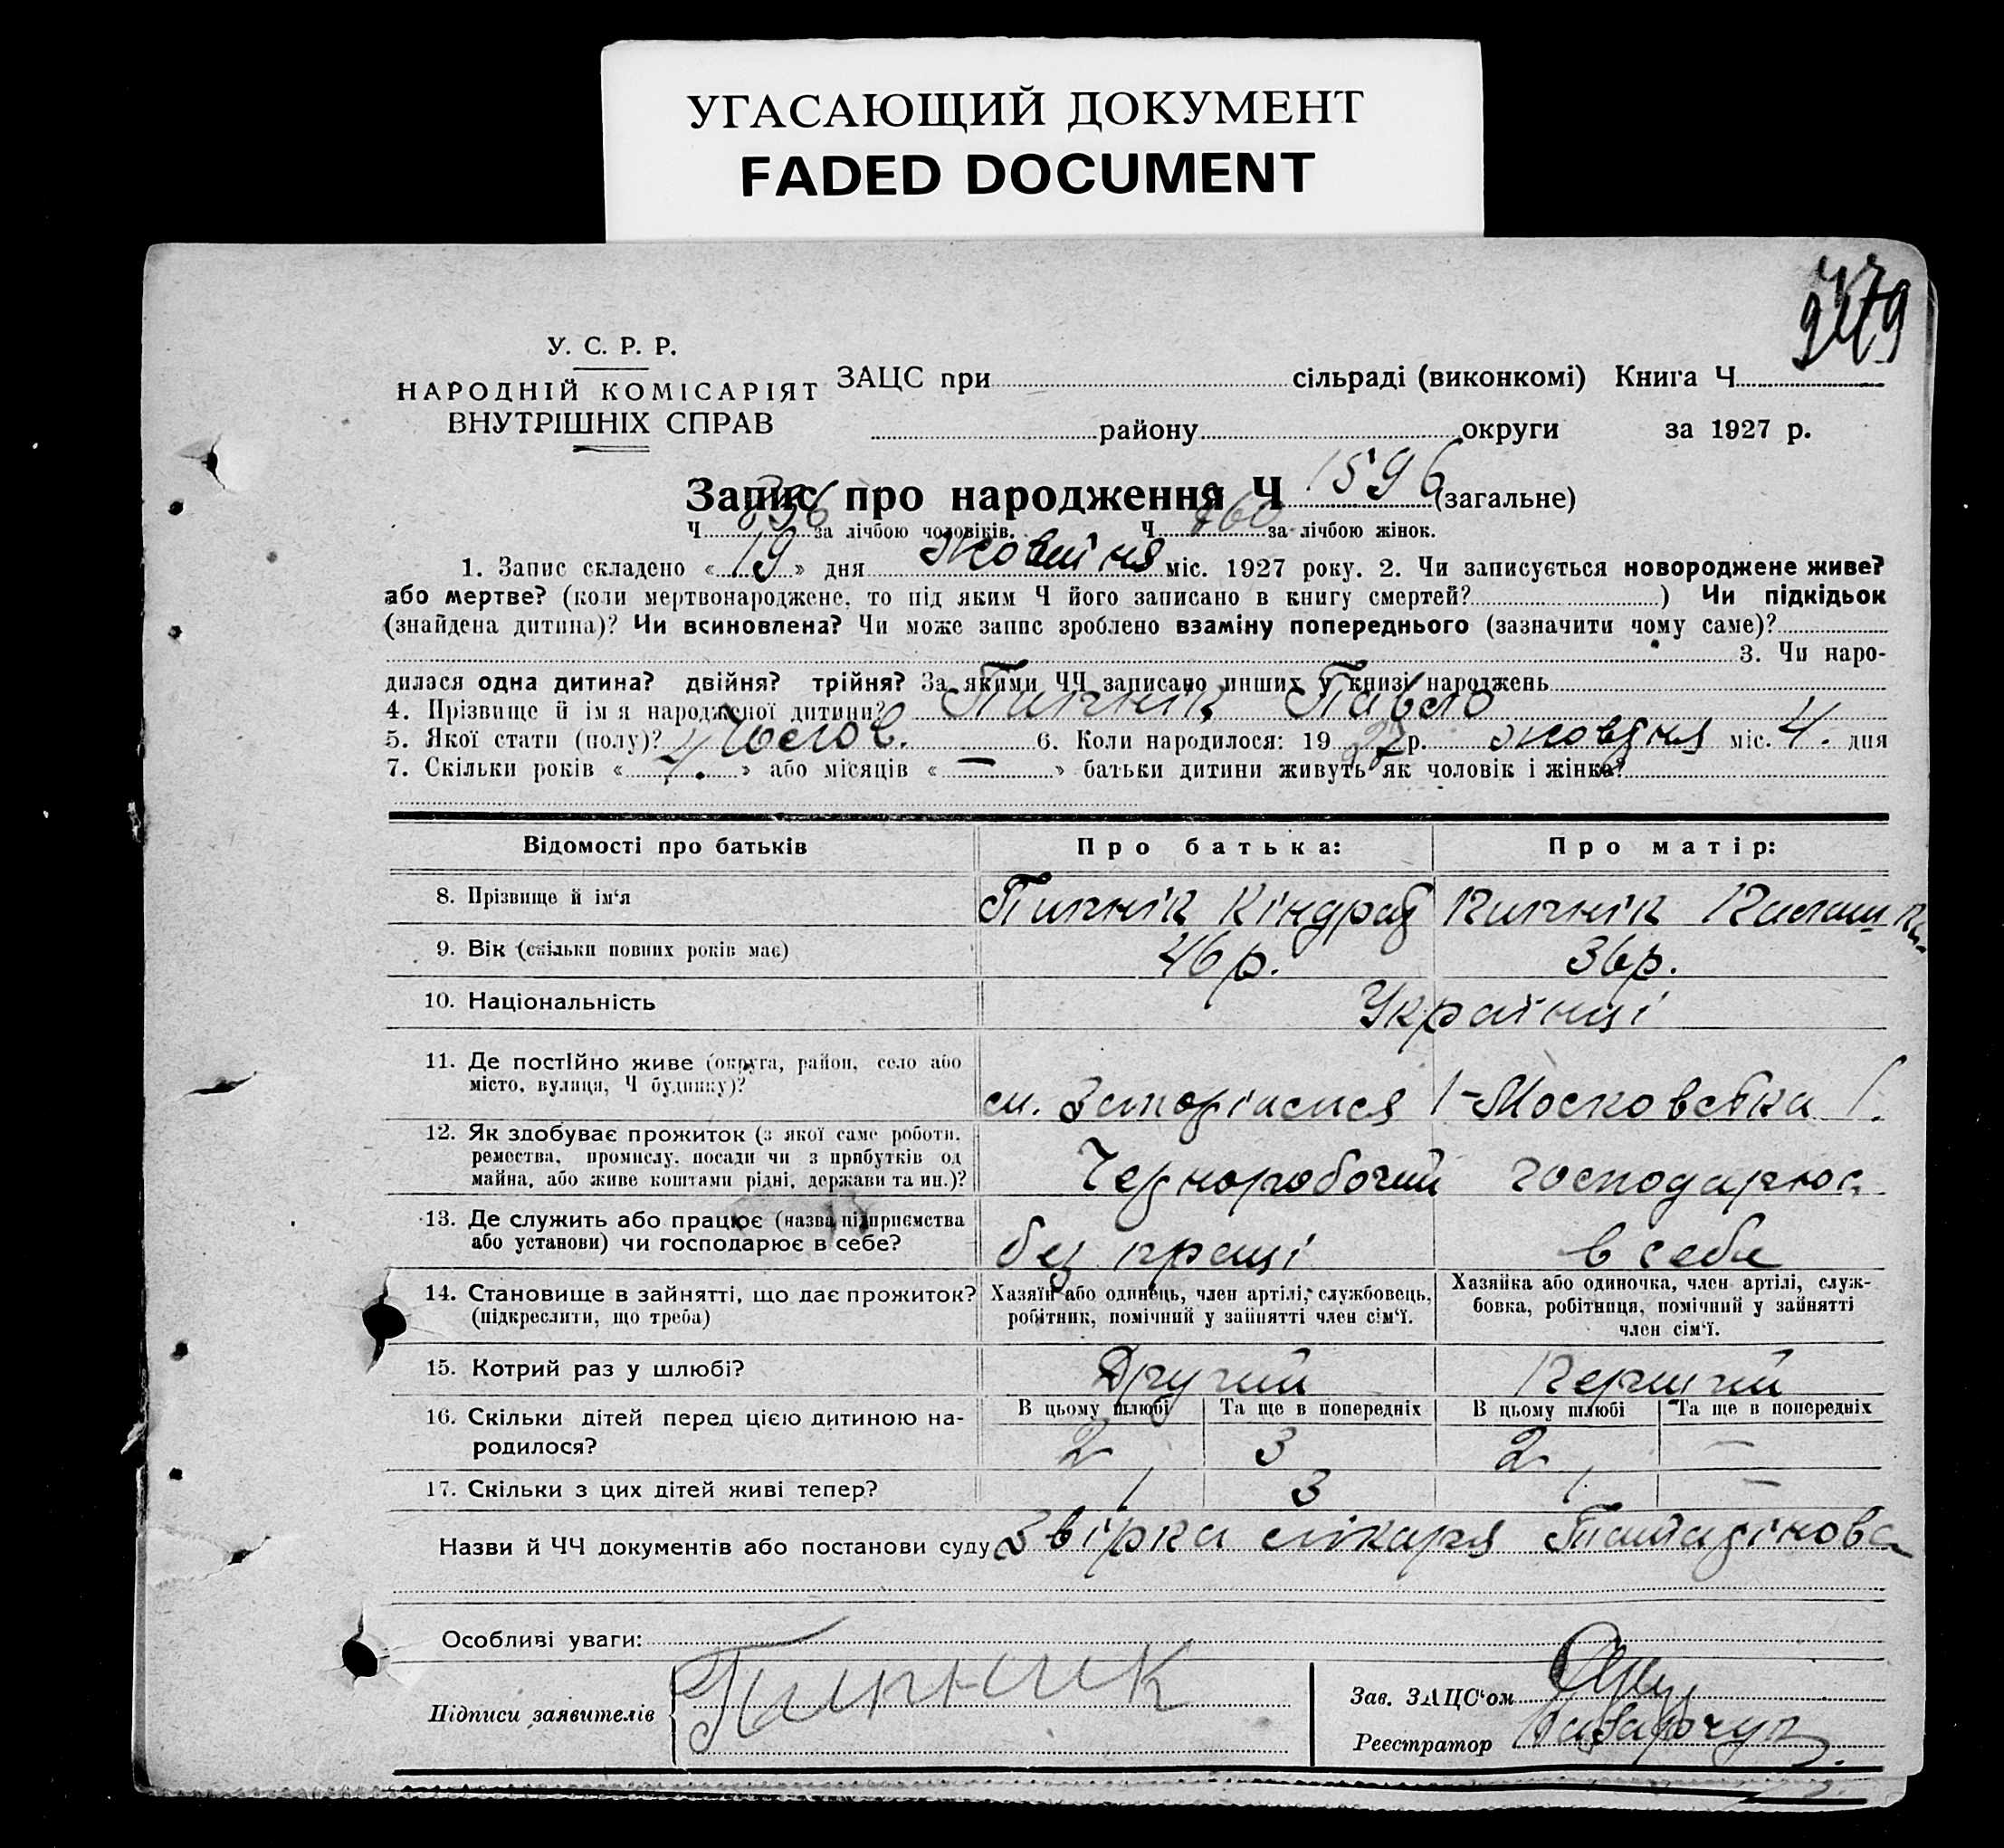 УГАСАЮЩИЙ ДОКУМЕНТ
FADED DOCUMENT
У. С. Р. Р.
НАРОДНІЙ КОМІСАРІЯТ
ВНУТРІШНІХ СПРАВ
ЗАЦС при сільраді (виконкомі) Книга Ч.
району округи за 1927 р.
Запис про народження Ч 1596 (загальне)
Ч. 836 за лічбою чоловіків. Ч. 760 за лічбою жінок.
1. Запис складено « 19 » дня жовтня міс. 1927 року. 2. Чи записується новороджене живе?
або мертве? (коли мертвонароджене, то під яким Ч його записано в книгу смертей? ) Чи підкідьок
(знайдена дитина)? Чи всиновлена? Чи може запис зроблено взаміну попереднього (зазначити чому саме)?
3. Чи наро-
дилася одна дитина? двійня? трійня? За якими ЧЧ записано инших у книзі народжень
4. Прізвище й ім я народженої дитини? Пипнік Павло
5. Якої стати (полу)? Чолов. 6. Коли народилося: 19 27 р. жовтня міс. 4. дня
7. Скільки років « 4. » або місяців « — » батьки дитини живуть як чоловік і жінка?
Відомості про батьків Про батька: Про матір:
8. Прізвище й ім'я Пипнік Кіндрат Пипнік
9. Вік (скільки повних років має) 46 р. 36 р.
10. Національність Українці
11. Де постійно живе (округа, район, село або
місто, вулиця, Ч будинку)?
м. Запоріжжя 1-Московська 1.
12. Як здобуває прожиток (з якої саме роботи,
ремества, промислу, посади чи з прибутків од
майна, або живе коштами рідні, держави та ин.)?
Чорноробочий господарює
13. Де служить або працює (назва підприємства
або установи) чи господарює в себе?
без праці в себе
14. Становище в зайнятті, що дає прожиток?
(підкреслити, що треба)
Хазяїн або одинець, член артілі, службовець,
робітник, помічний у зайнятті член сім'ї.
Хазяйка або одиночка, член артілі, служ-
бовка, робітниця, помічний у зайнятті
член сім'ї.
15. Котрий раз у шлюбі? Другий Перший
В цьому шлюбі Та ще в попередніх В цьому шлюбі Та ще в попередніх
16. Скільки дітей перед цією дитиною на-
родилося?
2 3 2 —
17. Скільки з цих дітей живі тепер? 1 3 1 —
Назви й ЧЧ документів або постанови суду Звірка лікаря
Особливі уваги:
Підписи заявителів Пипник
Зав. ЗАЦС'ом
Реєстратор